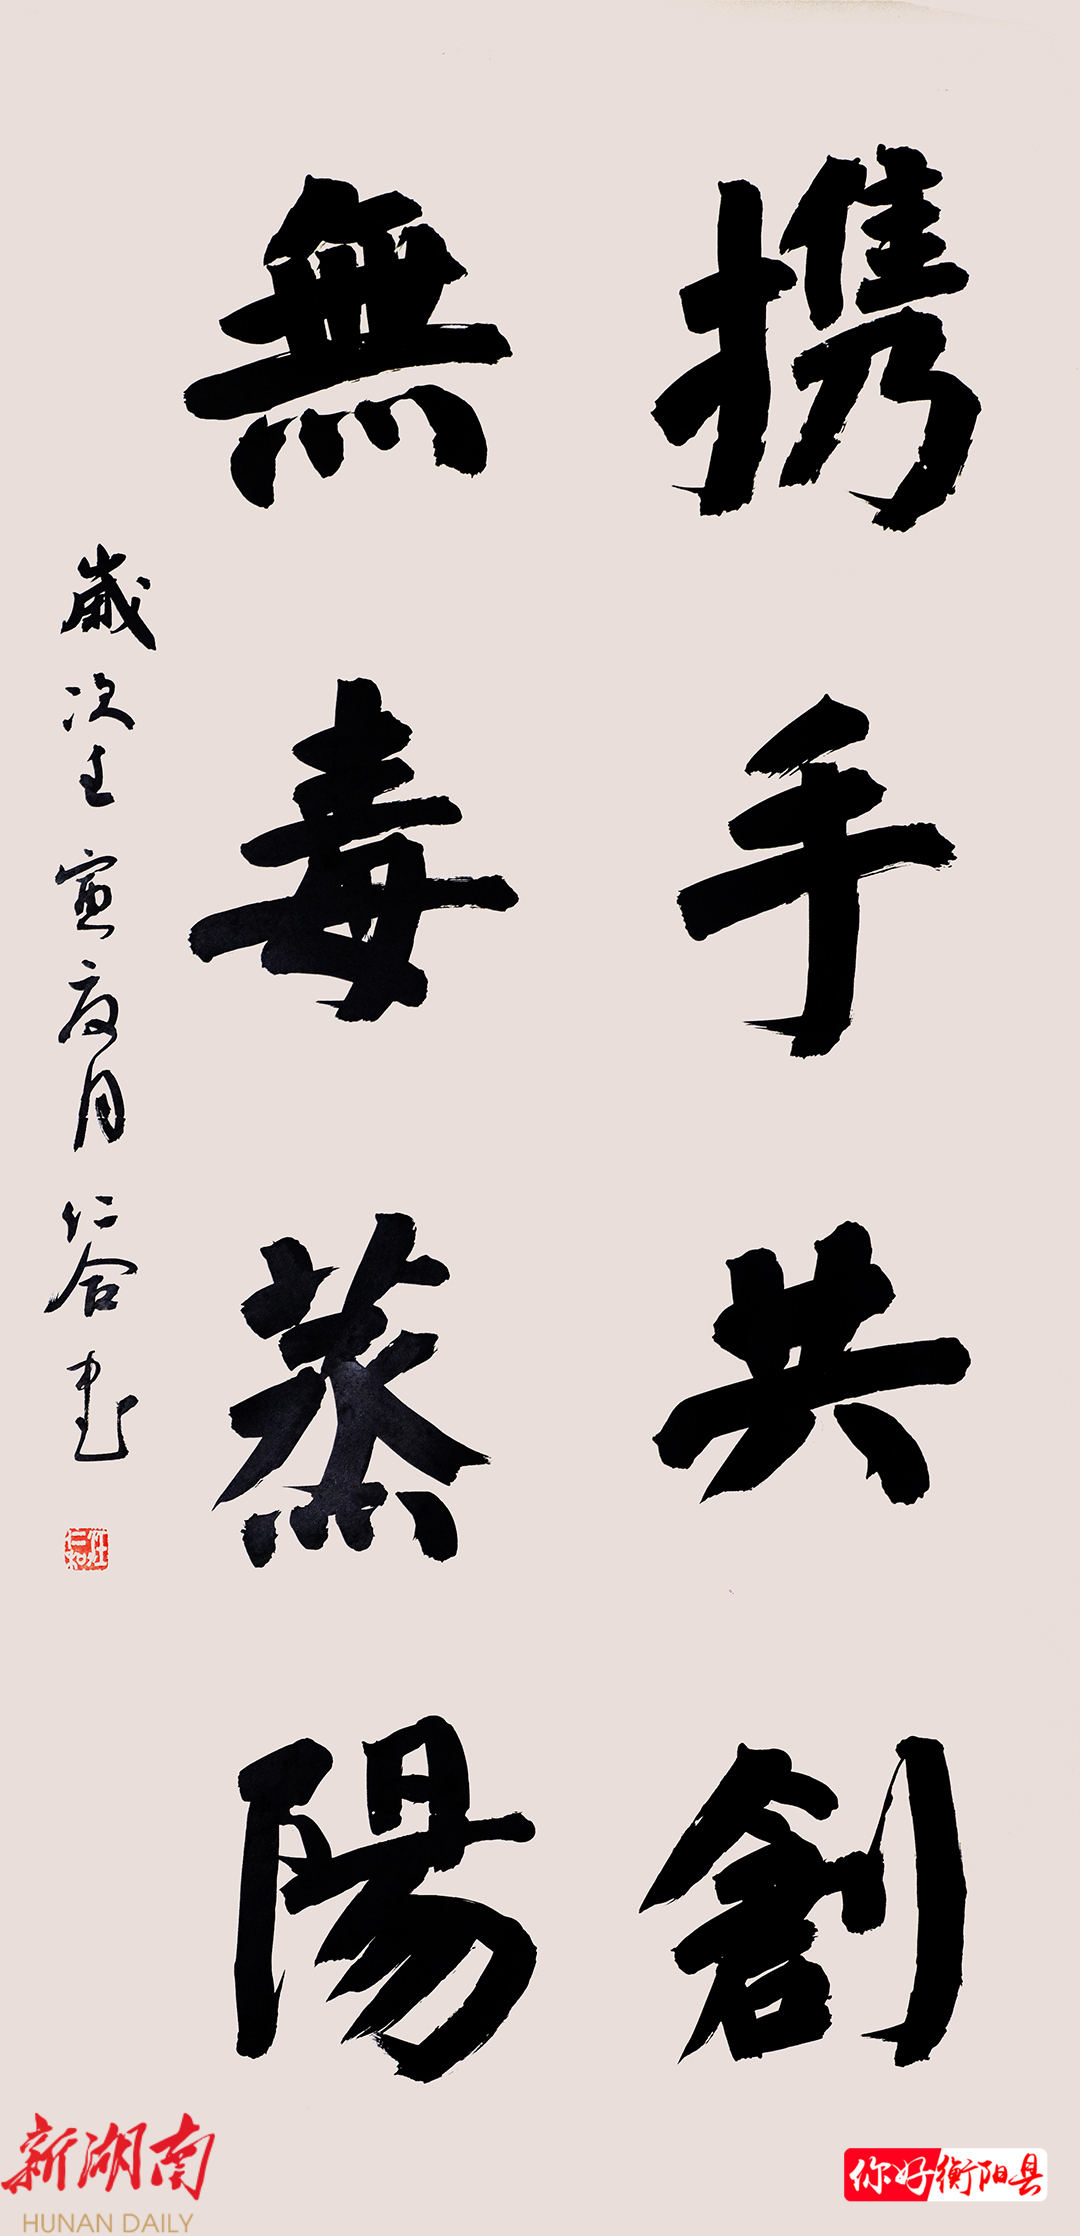 携手共創
無毒蒸陽
歲次壬寅夏月仁合书
新湖南
HUNAN DAILY
你好衡阳县